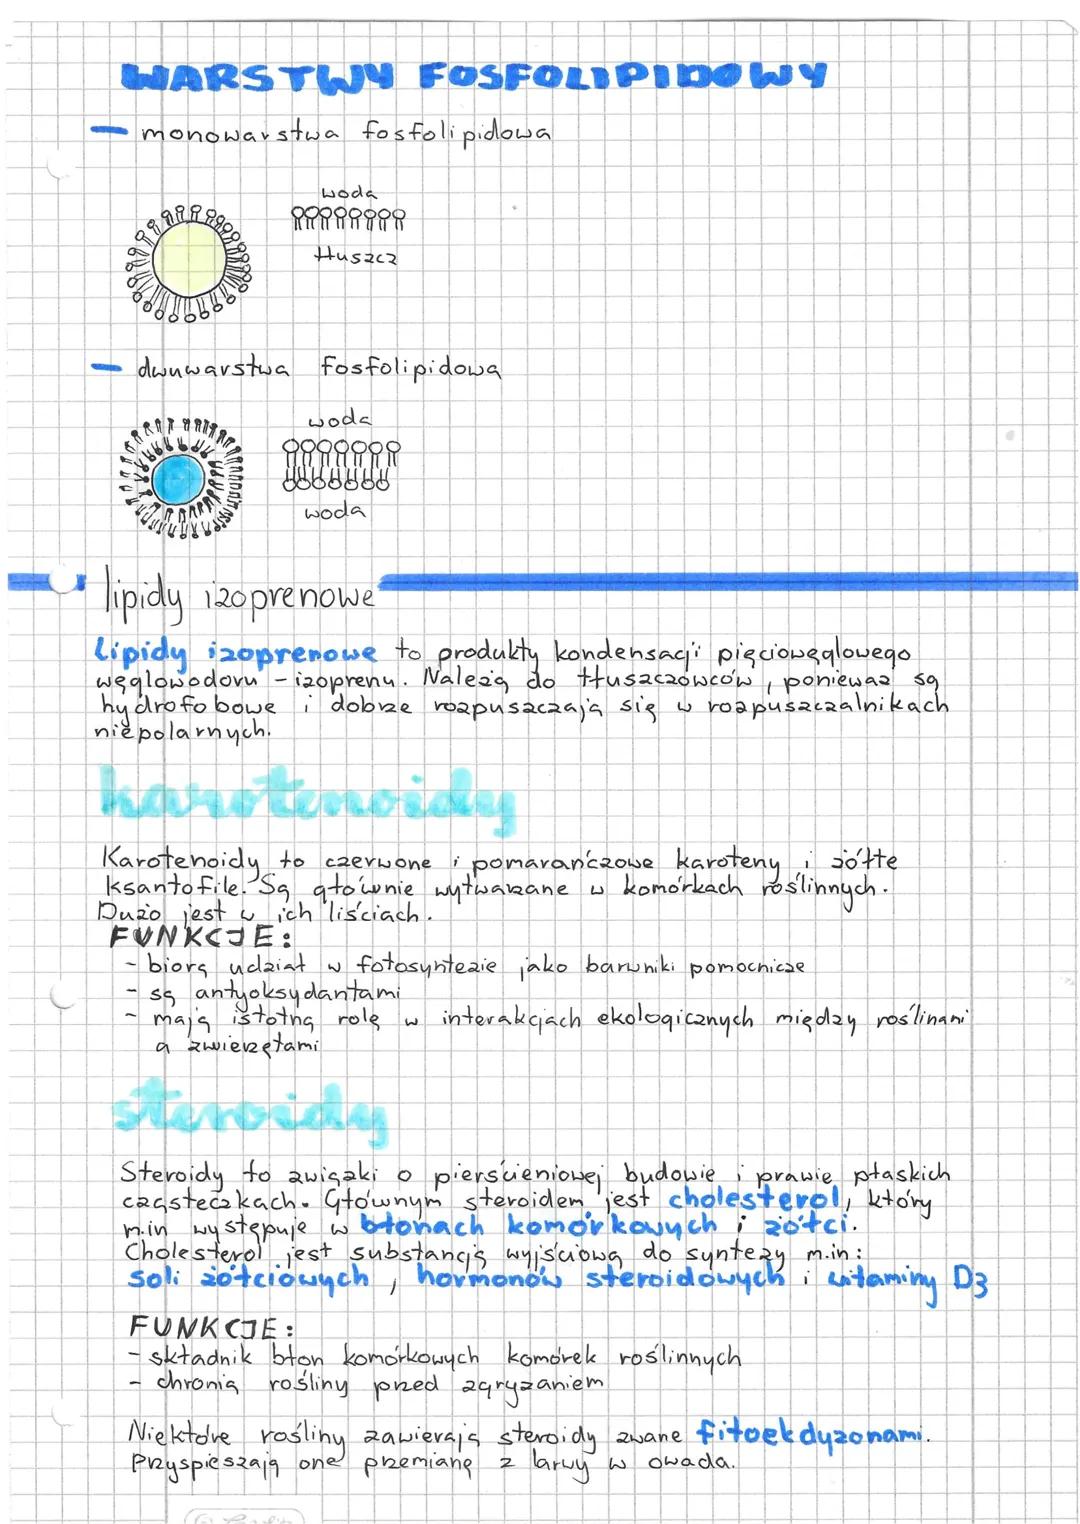 WARSTWY FOSFOLIPIDOWY
- monowarstwa fosfolipidowa
woda
tłuszcz
- dwuwarstwa fosfolipidowa
woda
woda
lipidy izoprenowe
Lipidy izoprenowe to produkty kondensacji pięciowęglowego
węglowodoru - izoprenu. Należą do tłuszczowców, ponieważ są
hydrofobowe i dobrze rozpuszczają się w rozpuszczalnikach
niepolarnych.
karotenoidy
Karotenoidy to czerwone i pomarańczowe karoteny i żółte
ksantofile. Są głównie wytwarzane w komórkach roślinnych.
Dużo jest w ich liściach.
FUNKCJE:
- biorą udział w fotosyntezie jako barwniki pomocnicze
- są antyoksydantami
- mają istotną rolę w interakcjach ekologicznych między roślinami
a zwierzętami
steroidy
Steroidy to związki o pierścieniowej budowie i prawie płaskich
cząsteczkach. Głównym steroidem jest cholesterol, który
m.in występuje w błonach komórkowych i żółci.
Cholesterol jest substancją wyjściową do syntezy m.in:
soli żółciowych, hormonów steroidowych i witaminy D3
FUNKCJE:
- składnik błon komórkowych komórek roślinnych
- chronią rośliny przed zgryzaniem
Niektóre rośliny zawierają steroidy zwane fitoekdyzonami.
Przyspieszają one przemianę z larwy w owada.